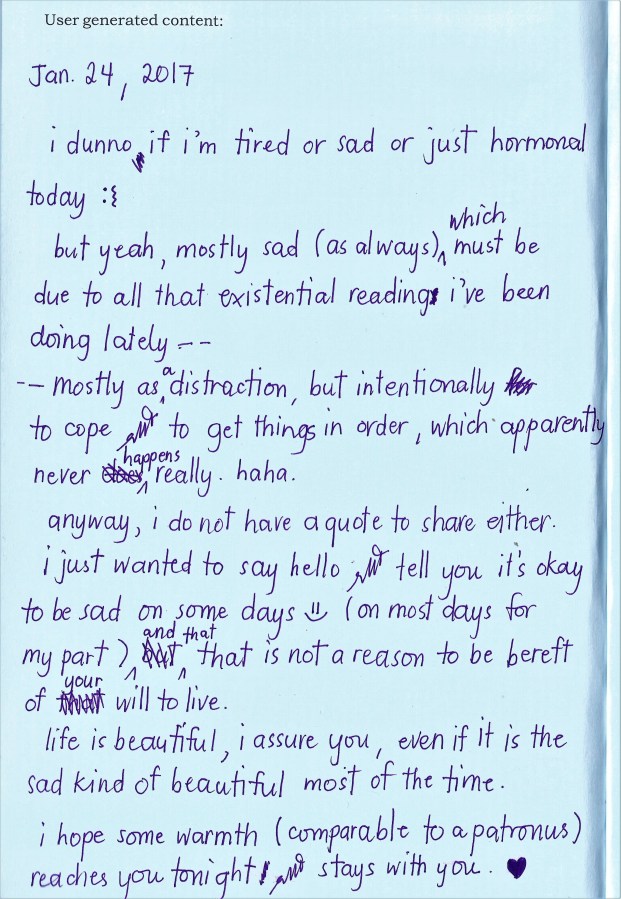 User generated content:
Jan. 24, 2017
i dunno, if i'm tired or sad or just hormonal
today :{
but yeah, mostly sad (as always), which must be
due to all that existential reading i've been
doing lately --
-- mostly as a distraction, but intentionally
to cope and to get things in order, which apparently
never happens really. haha.
anyway, i do not have a quote to share either.
i just wanted to say hello and tell you it's okay
to be sad on some days :) (on most days for
my part), and that that is not a reason to be bereft
of your will to live.
life is beautiful, i assure you, even if it is the
sad kind of beautiful most of the time.
i hope some warmth (comparable to a patronus)
reaches you tonight, and stays with you. ♥